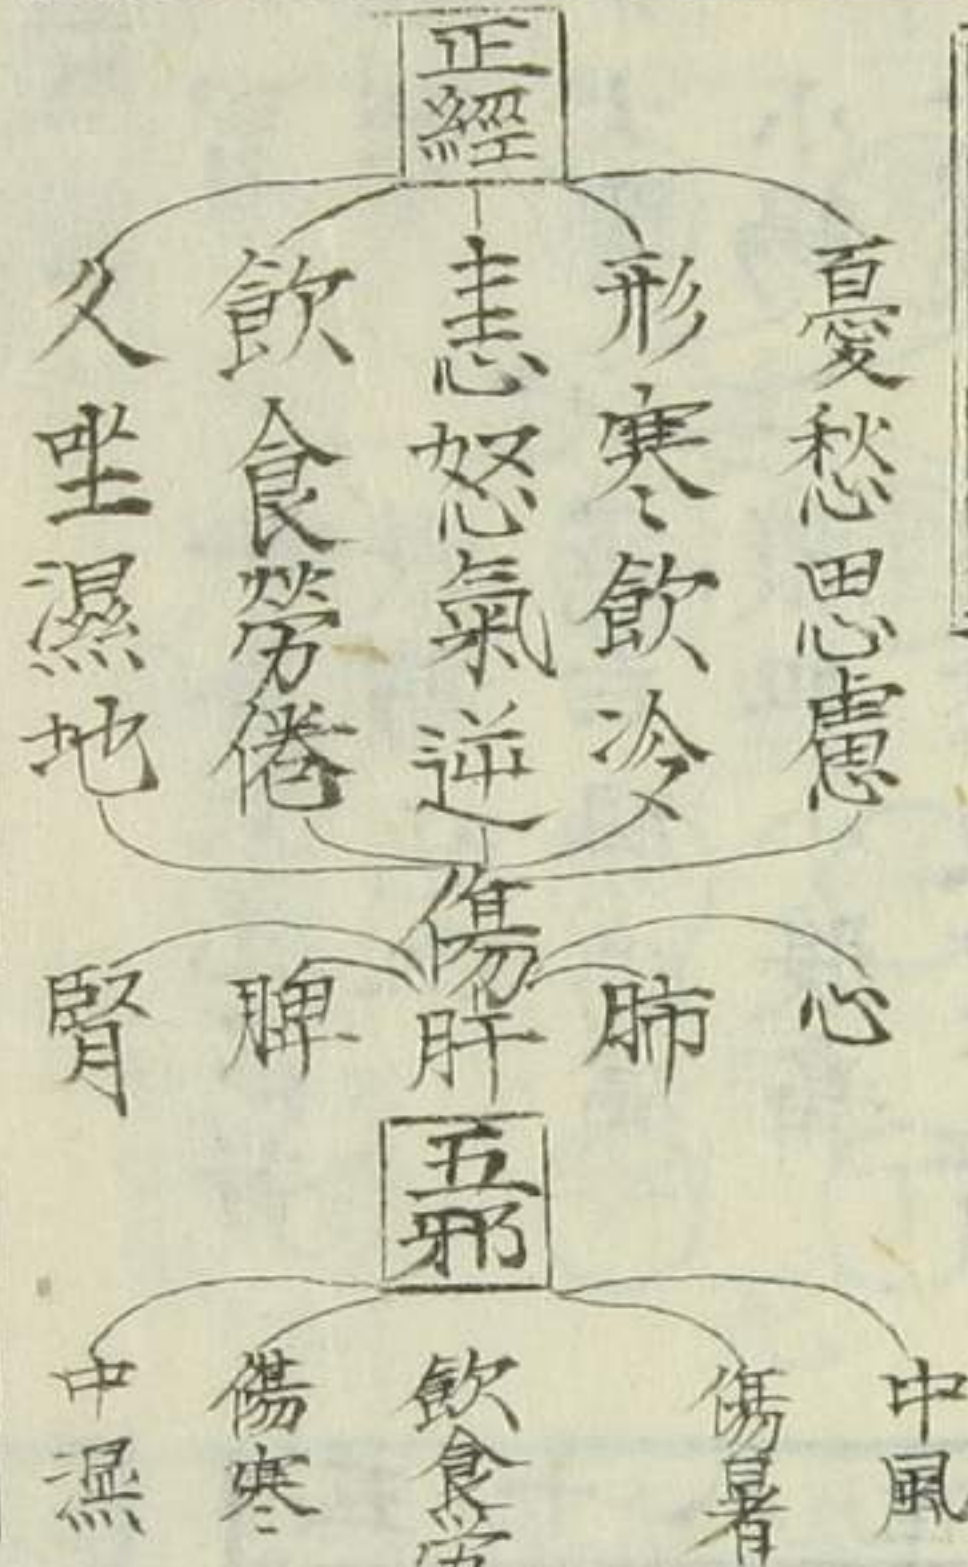 正經
憂愁思慮
形寒飲冷
恚怒氣逆
飲食勞倦
久坐濕地
傷
心
肺
肝
脾
腎
五邪
中風
傷暑
飲食勞
傷寒
中濕